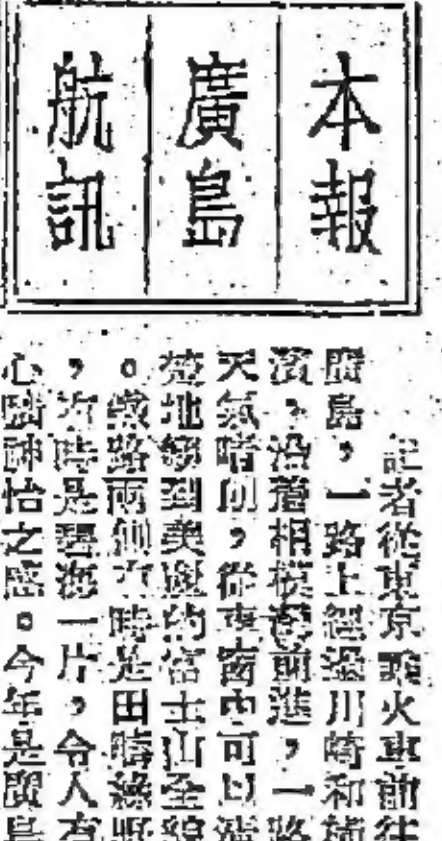 本報
廣島
航訊
記者從東京乘火車前往
廣島，一路上經過川崎和橫
濱，沿着相模灣前進，一路
天氣晴朗，從車窗中可以清
楚地領到美麗的富士山全貌
。鐵路兩側有時是田疇綠野
，有時是碧海一片，令人有
心曠神怡之感。今年是廣島